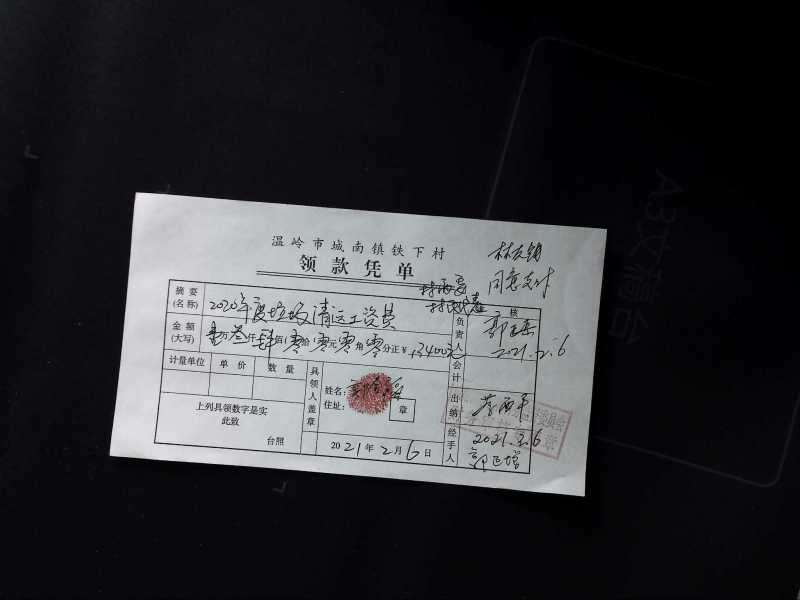 温岭市城南镇铁下村
领款凭单
同意支付
摘要(名称) 2020年度垃圾清运工资费
金额(大写) 万叁仟肆佰零拾零元零角零分正¥ 3400元
负责人 核 2021.2.6
计量单位 单价 数量
具领人盖章
姓名:
住址:
章
会计
出纳
上列具领数字是实
此致
台照
2021年2月6日
经手人
2021.2.6
A3文稿台